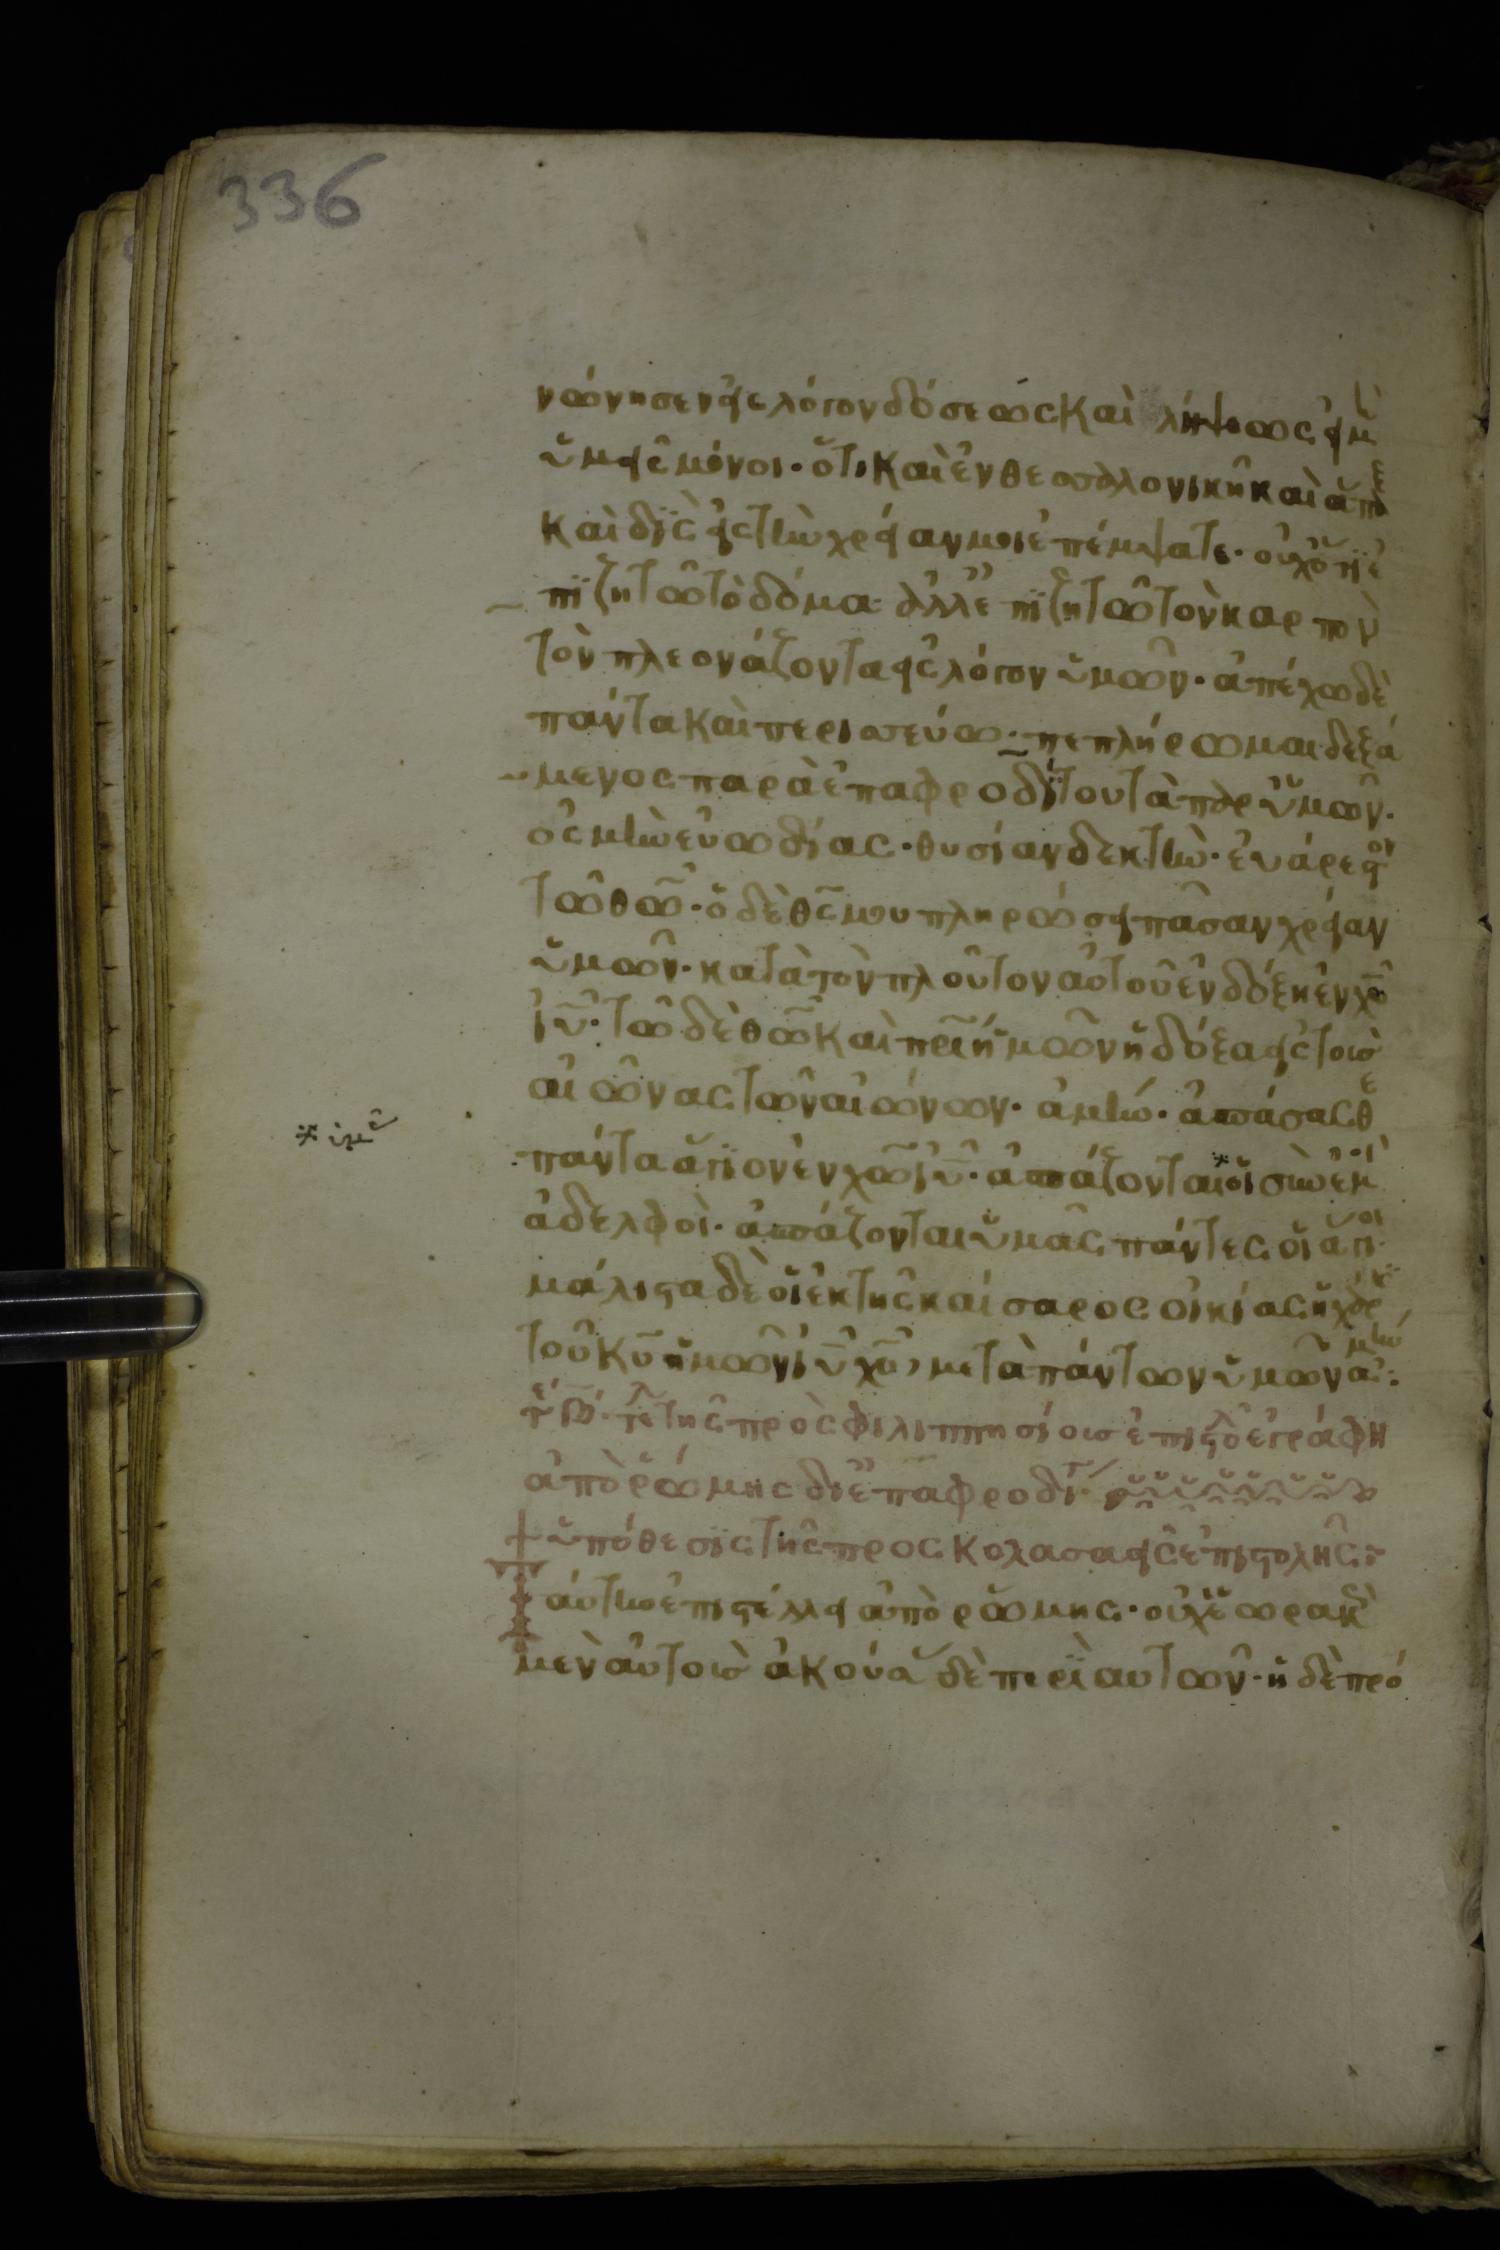 336
νώνησεν εἰς λόγον δόσεως καὶ λήψεως εἰ μὴ
ὑμεῖς μόνοι· ὅτι καὶ ἐν θεσσαλονίκη καὶ ἅπαξ
καὶ δὶς εἰς τὴν χρείαν μοι ἐπέμψατε· οὐχ ὅτι ἐ
πιζητῶ τὸ δόμα· ἀλλ' ἐπιζητῶ τὸν καρπὸν
τὸν πλεονάζοντα εἰς λόγον ὑμῶν· ἀπέχω δὲ
πάντα καὶ περισσεύω· πεπλήρωμαι δεξά
μενος παρὰ ἐπαφροδίτου τὰ παρ' ὑμῶν·
ὀσμὴν εὐωδίας· θυσίαν δεκτὴν· εὐάρεστον
τῶ θῶ· ὁ δὲ θς μου πληρώσει πᾶσαν χρείαν
ὑμῶν· κατὰ τὸν πλοῦτον αὐτοῦ ἐν δόξη ἐν χω
ιυ· τῶ δὲ θω καὶ πρι ἡμῶν ἡ δόξα εἰς τοὺς
αἰῶνας τῶν αἰώνων· ἀμήν· ἀσπάσασθε
※ ὑμᾶς
πάντα ἅγιον ἐν χω ιυ· ἀσπάζονται ※ οἱ σὺν ἐμοὶ
ἀδελφοὶ· ἀσπάζονται ὑμᾶς πάντες οἱ ἅγιοι·
μάλιστα δὲ οἱ ἐκ τῆς καίσαρος οἰκίας ἡ χάρις
τοῦ κυ ἡμῶν ιυ χυ, μετὰ πάντων ὑμῶν ἀμήν:
τῆς πρὸς φιλιππησίους ἐπιστολ ἐγράφη
ἀπὸ ῥώμης δι' ἐπαφροδίτ
+ ὑπόθεσις τῆς πρὸς κολασαεῖς ἐπιστολῆς:
Ταύτην ἐπιστέλλει ἀπὸ ῥώμης· οὐχ ἑωρακὼς
μὲν αὐτοὺς ἀκούσας δὲ περὶ αὐτῶν· ἡ δὲ πρό